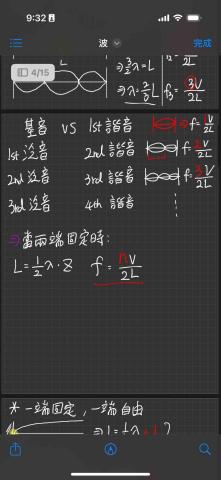 9:32
波
完成
4/15
L
⇒ 3/2 λ = L
⇒ λ = 2/3 L
2L
f₃ = 3V/2L
基音 VS 1st 諧音 ⇒ f = V/2L
1st 泛音 2nd 諧音 f = 2V/2L
2nd 泛音 3rd 諧音 f = 3V/2L
3rd 泛音 4th 諧音
⇒ 當兩端固定時:
L = 1/2 λ · 8 f = nV/2L
* 一端固定, 一端自由